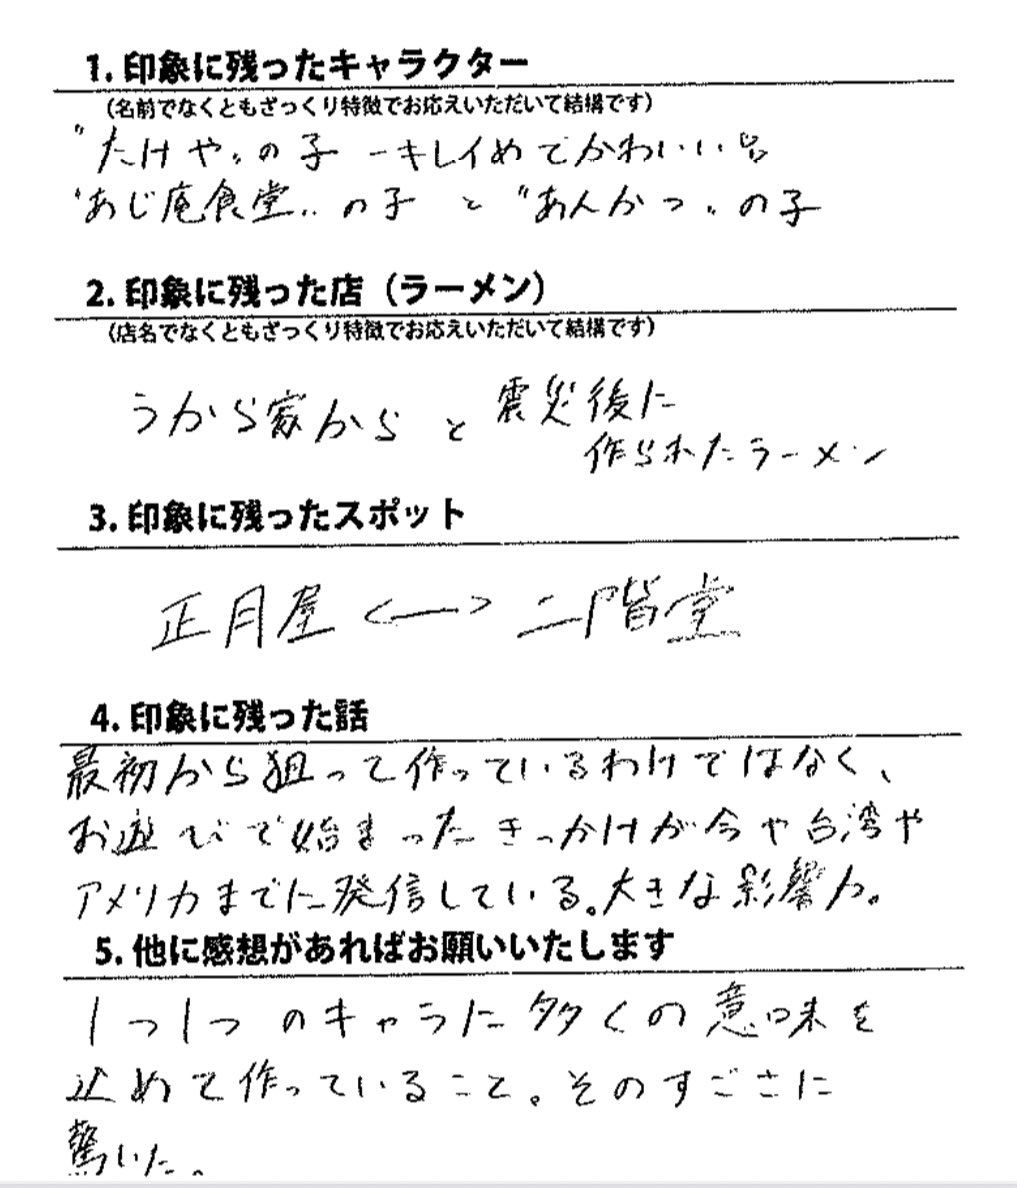 1. 印象に残ったキャラクター
（名前でなくともざっくり特徴でお応えいただいて結構です）
"たけや"の子 ーキレイめでかわいい
"あじ庵食堂"の子 と "あんかつ"の子
2. 印象に残った店（ラーメン）
（店名でなくともざっくり特徴でお応えいただいて結構です）
うから家から と 震災後に
作られたラーメン
3. 印象に残ったスポット
正月屋 <ー> 二階堂
4. 印象に残った話
最初から狙って作っているわけではなく、
お遊びで始まったきっかけが今や台湾や
アメリカまでに発信している。大きな影響力。
5. 他に感想があればお願いいたします
1つ1つのキャラに多くの意味を
込めて作っていること。そのすごさに
驚いた。